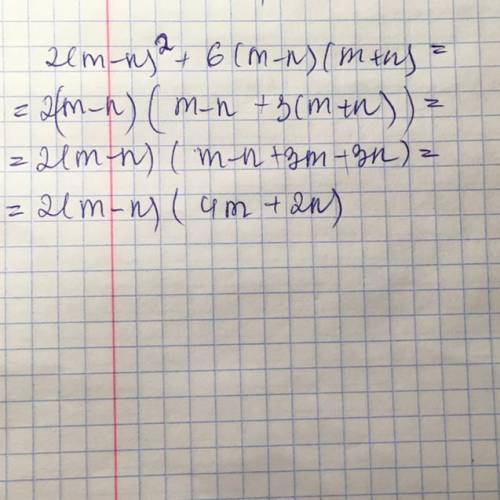 2(m-n)² + 6(m-n)(m+n) =
= 2(m-n)(m-n + 3(m+n)) =
= 2(m-n)(m-n+3m+3n) =
= 2(m-n)(4m+2n)